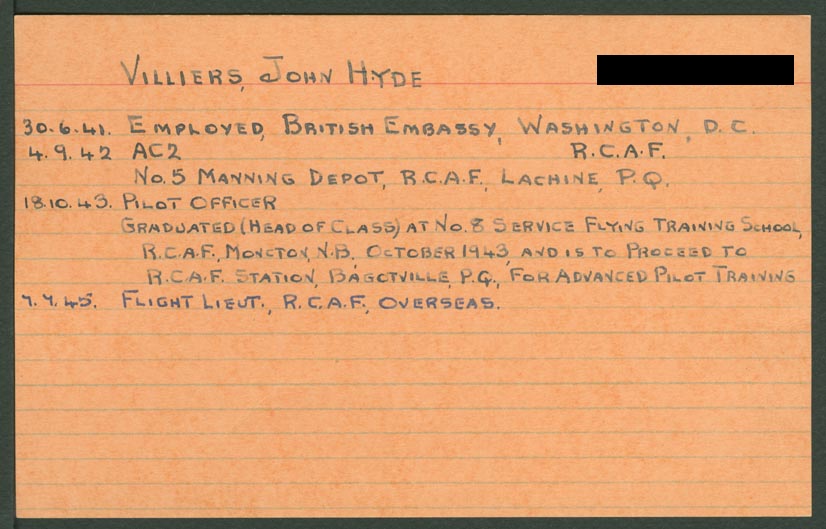 VILLIERS, JOHN HYDE
30.6.41. EMPLOYED, BRITISH EMBASSY, WASHINGTON, D.C.
4.9.42 AC2 R.C.A.F.
NO.5 MANNING DEPOT, R.C.A.F., LACHINE, P.Q.
18.10.43. PILOT OFFICER
GRADUATED (HEAD OF CLASS) AT NO.8 SERVICE FLYING TRAINING SCHOOL,
R.C.A.F., MONCTON, N.B. OCTOBER 1943, AND IS TO PROCEED TO
R.C.A.F. STATION, BAGOTVILLE, P.Q., FOR ADVANCED PILOT TRAINING
7.7.45. FLIGHT LIEUT., R.C.A.F., OVERSEAS.